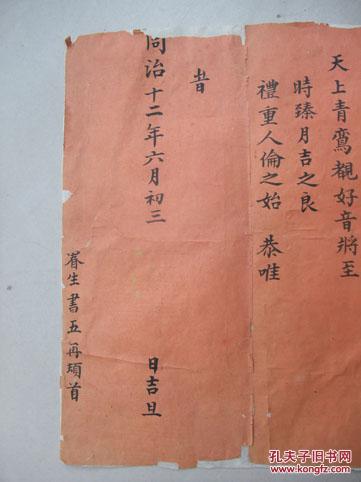 天上青鸞覩好音將至
時臻月吉之良
禮重人倫之始 恭唯
旹
同治十二年六月初三 日吉旦
眷生書五再頊首
孔夫子旧书网